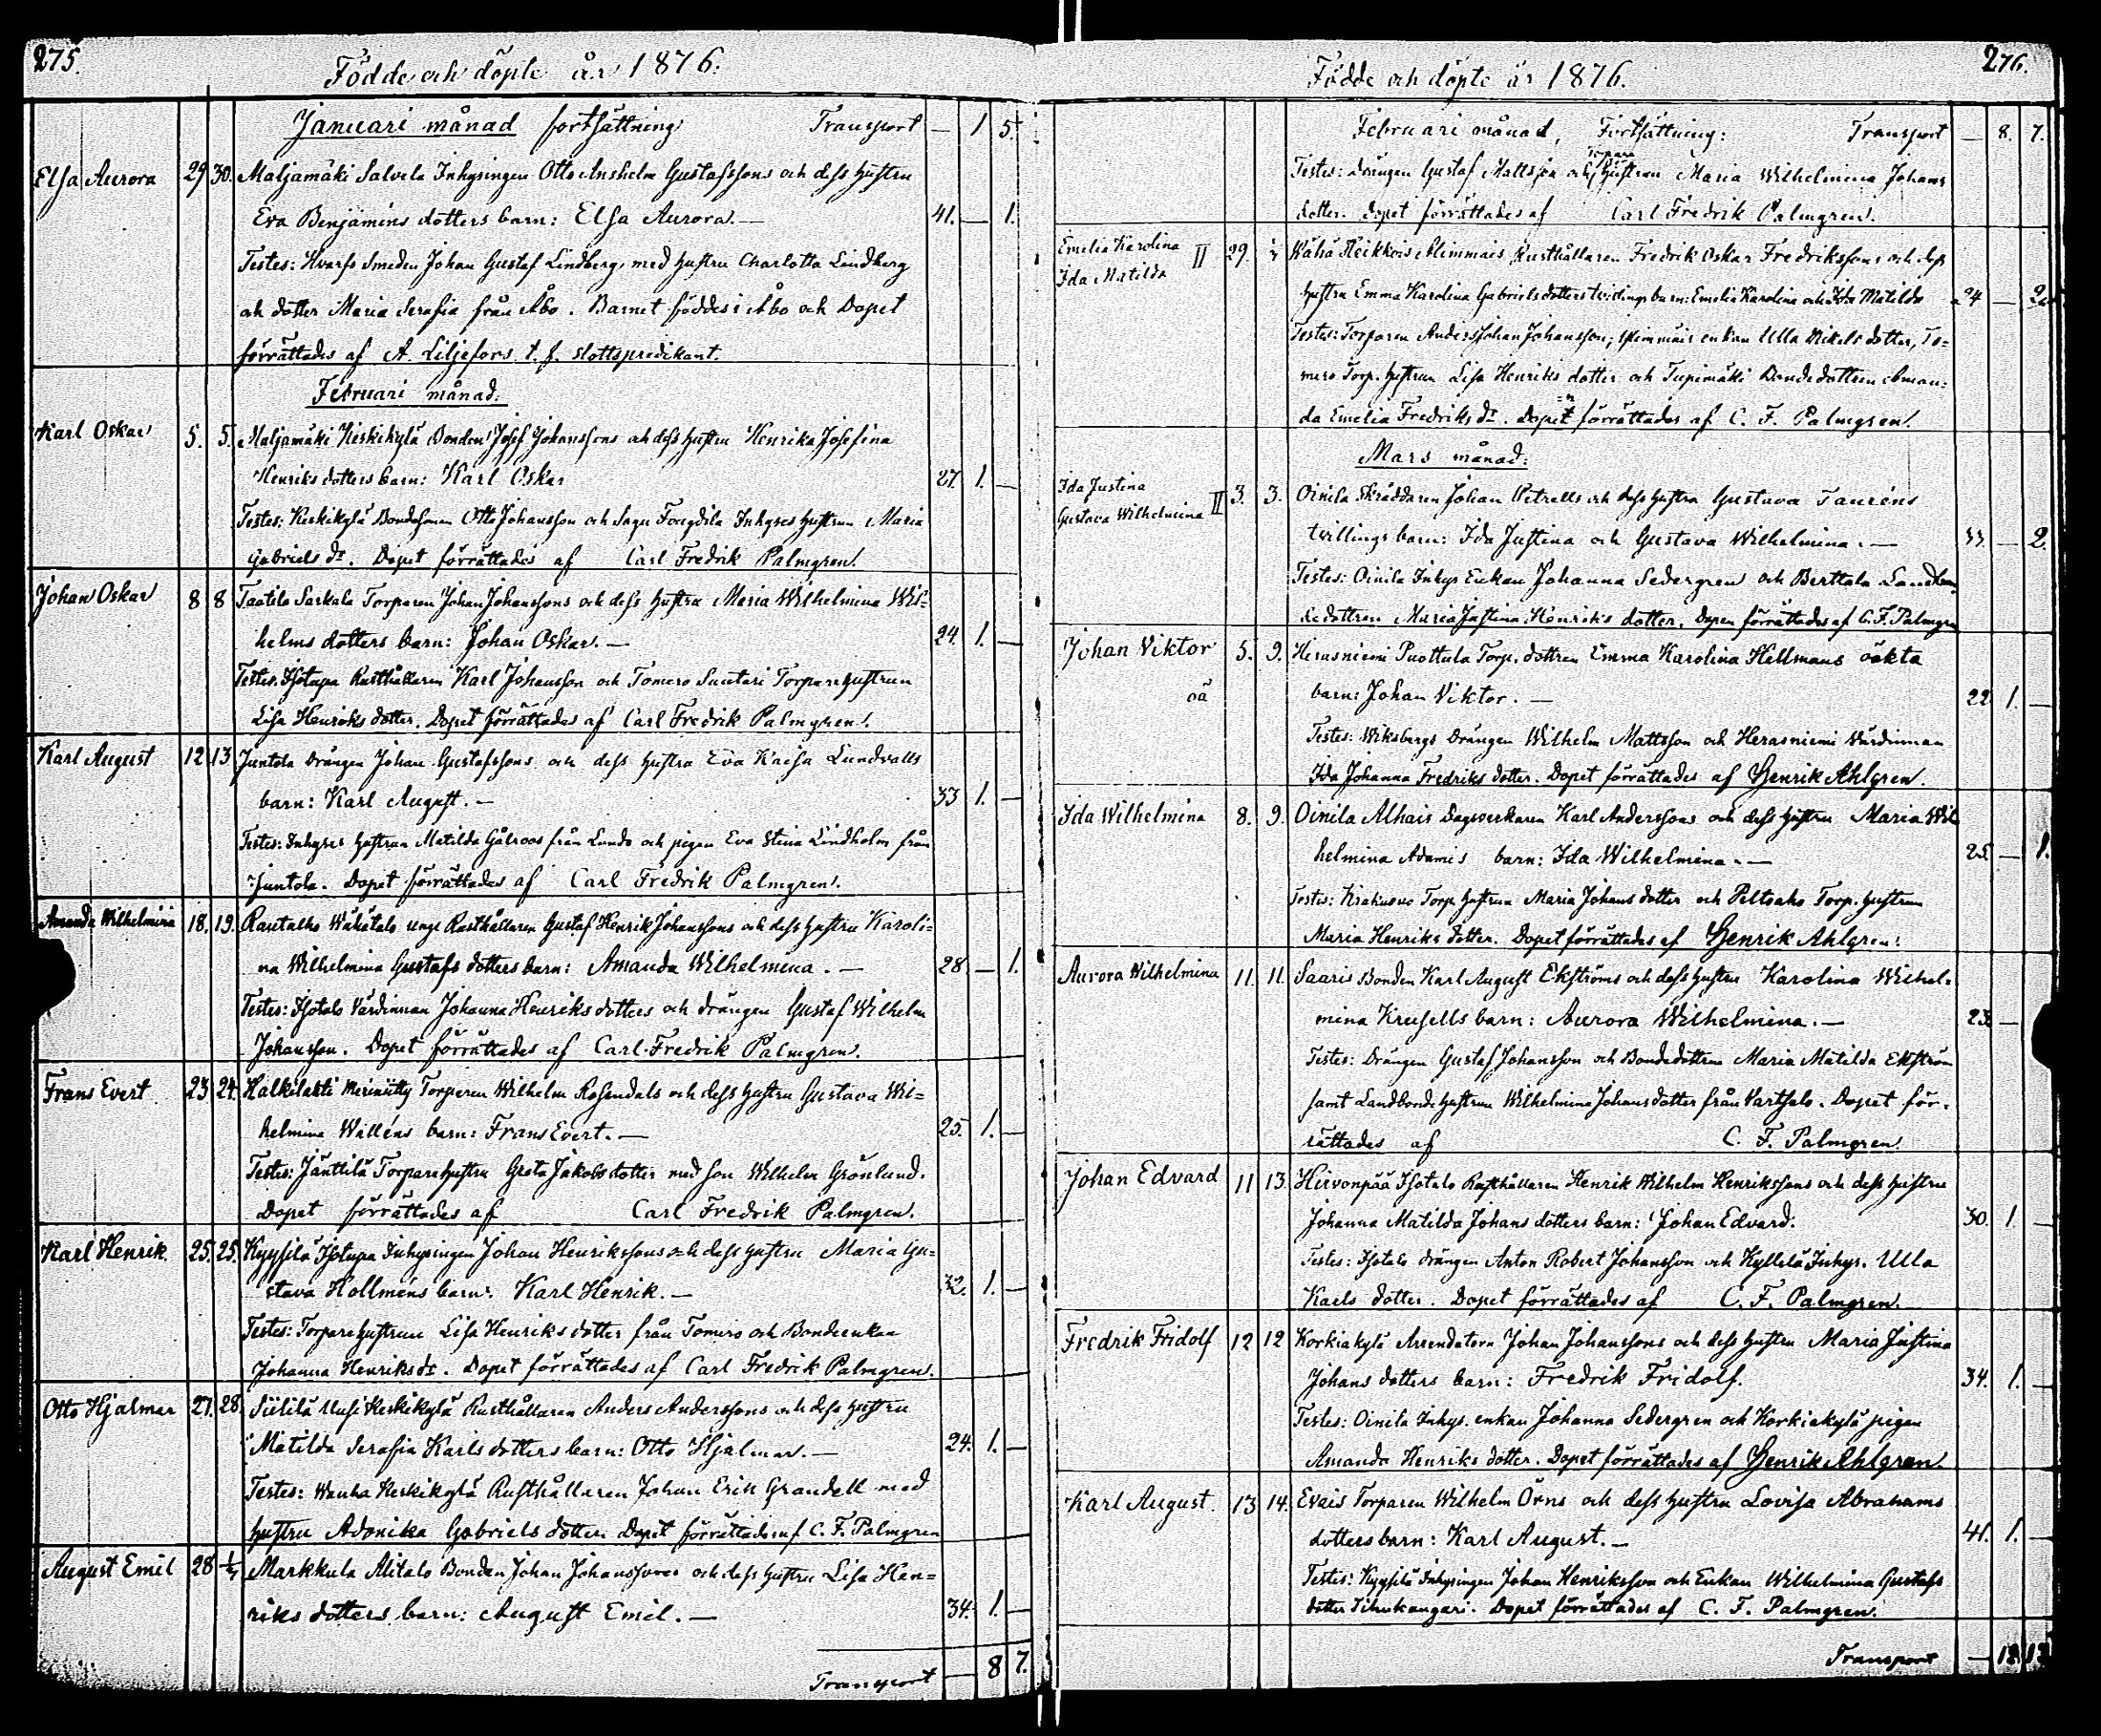 275.
Födde och döpte år 1876.
Januari månad fortsättning Transport — 1 5.
Elsa Aurora 29 30. Maljamäki Salvela Inhysingen Otto Anshelm Gustafssons och dess hustru
Eva Benjamins dotters barn: Elsa Aurora. — 41. — 1.
Testes: Hvarfs Smeden Johan Gustaf Lindberg, med hustru Charlotta Lindberg
och dotter Maria Serafia från Åbo. Barnet föddes i Åbo och Dopet
förrättades af A. Liljefors t. f. slottspredikant.
Februari månad.
Karl Oskar 5. 5. Maljamäki Keskikylä Bonden Josef Johanssons och dess hustru Henrika Josefina
Henriks dotters barn: Karl Oskar 27. 1. —
Testes: Keskikylä Bondesonen Otto Johansson och Sagu Inhyses hustrun Maria
Gabriels dr. Dopet förrättades af Carl Fredrik Palmgren.
Johan Oskar 8 8 Taatila Sarkala Torparen Johan Johanssons och dess hustru Maria Wilhelmina Wil=
helms dotters barn: Johan Oskar. — 24. 1. —
Testes: Isotupa Rusthållaren Karl Johansson och Tomero Suutari Torpare hustrun
Lisa Henriks dotter. Dopet förrättades af Carl Fredrik Palmgren.
Karl August 12 13 Juntola Drängen Johan Gustafssons och dess hustru Eva Kaisa Lundvalls
barn: Karl August. — 33 1. —
Testes: Inhyses hustrun Matilda Gålroos från Lundo och pigan Eva Stina Lindholm från
Juntola. Dopet förrättades af Carl Fredrik Palmgren.
Amanda Wilhelmina 18. 19. Rauvalko Wähätalo unge Rusthållaren Gustaf Henrik Johanssons och dess hustru Karoli=
na Wilhelmina Gustafs dotters barn: Amanda Wilhelmina. — 28 — 1.
Testes: Isotalo Värdinnan Johanna Henriks dotter och drängen Gustaf Wilhelm
Johansson. Dopet förrättades af Carl Fredrik Palmgren.
Frans Evert 23 24. Kalkilahti Meriniitty Torparen Wilhelm Rosendals och dess hustru Gustava Wi=
helmina Willéns barn: Frans Evert. — 25. 1. —
Testes: Jänttilä Torparehustru Greta Jakobs dotter med son Wilhelm Grönlund.
Dopet förrättades af Carl Fredrik Palmgren.
Karl Henrik. 25. 25. Kyysilä Isotupa Inhysingen Johan Henrikssons och dess hustru Maria Gu=
stava Hollméns barn: Karl Henrik. — 32. 1. —
Testes: Torpare hustrun Lisa Henriks dotter från Tomero och Bondeenkan
Johanna Henriks dr. Dopet förrättades af Carl Fredrik Palmgren.
Otto Hjalmar 27. 28. Siililä Uusi Keskikylä Rusthållaren Anders Anderssons och dess hustru
Matilda Serafia Karls dotters barn: Otto Hjalmar. — 24. 1. —
Testes: Wanha Keskikylä Rusthållaren Johan Erik Grandell med
hustru Adonika Gabriels dotter. Dopet förrättades af C. F. Palmgren
August Emil 28 1/4 Markkula Alitalo Bonden Johan Johanssons och dess hustru Lisa Hen=
riks dotters barn: August Emil. — 34. 1. —
Transport — 8 7.
276.
Födde och döpte år 1876.
Februari månad, Fortsättning: Transport — 8. 7.
Torpare
Testes: Drängen Gustaf Mattsson och hustrun Maria Wilhelmina Johans
dotter. Dopet förrättades af Carl Fredrik Palmgren.
Emelia Karolina II 29. 1/4 Wähä Heikkois Rusthållaren Fredrik Oskar Fredrikssons och dess
Ida Matilda
hustru Emma Karolina Gabriels dotters tvillings barn: Emelia Karolina och Ida Matilda 24 — 2.
Testes: Torparen Anders Johan Johansson, enkan Ulla Mikels dotter, To=
mero Torp. hustrun Lisa Henriks dotter och Tupimäki Bondedottren Aman=
da Emelia Fredriks dr. Dopet förrättades af C. F. Palmgren.
Mars månad:
Ida Justina
Gustava Wilhelmina II 3. 3. Oinila Skräddaren Johan Petrells och dess hustru Gustava Tauréns
tvillings barn: Ida Justina och Gustava Wilhelmina. — 33. — 2.
Testes: Oinila Inhys Enkan Johanna Sedergren och Berttala Landbon
dedottren Maria Justina Henriks dotter. Dopen förrättades af C. F. Palmgren
Johan Viktor 5. 9. Herasniemi Puottula Torp. dottren Emma Karolina Hellmans oäkta
oä barn: Johan Viktor. — 22. 1. —
Testes: Wiksbergs Drängen Wilhelm Mattsson och Herasniemi Värdinnan
Ida Johanna Fredriks dotter. Dopet förrättades af Henrik Ahlgren.
Ida Wilhelmina 8. 9. Oinila Alhais Dagsverkaren Karl Anderssons och dess hustru Maria Wil
helmina Adamis barn: Ida Wilhelmina. — 25. — 1.
Testes: Torp. hustrun Maria Johans dotter och Peltoaho Torp. hustrun
Maria Henriks dotter. Dopet förrättades af Henrik Ahlgren.
Aurora Wilhelmina 11. 11. Saaris Bonden Karl August Ekströms och dess hustru Karolina Wilhel=
mina Krusells barn: Aurora Wilhelmina. — 23. —
Testes: Drängen Gustaf Johansson och Bondedottren Maria Matilda Ekström
samt Landbonde hustrun Wilhelmina Johans dotter från Vartsalo. Dopet för=
rättades af C. F. Palmgren.
Johan Edvard 11 13. Hirvonpää Isotalo Rusthållaren Henrik Wilhelm Henrikssons och dess hustru
Johanna Matilda Johans dotters barn: Johan Edvard. 30. 1. —
Testes: Isotalo drängen Anton Robert Johansson och Kyllelä Inhys. Ulla
Karls dotter. Dopet förrättades af C. F. Palmgren.
Fredrik Fridolf 12 12 Korkiakylä Arrendatorn Johan Johanssons och dess hustru Maria Justina
Johans dotters barn: Fredrik Fridolf. 34. 1. —
Testes: Oinila Inhys. enkan Johanna Sedergren och Korkiakylä pigan
Amanda Henriks dotter. Dopet förrättades af Henrik Ahlgren
Karl August. 13 14. Evais Torparen Wilhelm Örns och dess hustru Lovisa Abrahams
dotters barn: Karl August. — 41. 1. —
Testes: Kyysilä Inhysingen Johan Henriksson och Enkan Wilhelmina Gustafs
dotter Tihukangari. Dopet förrättades af C. F. Palmgren.
Transport — 12 13